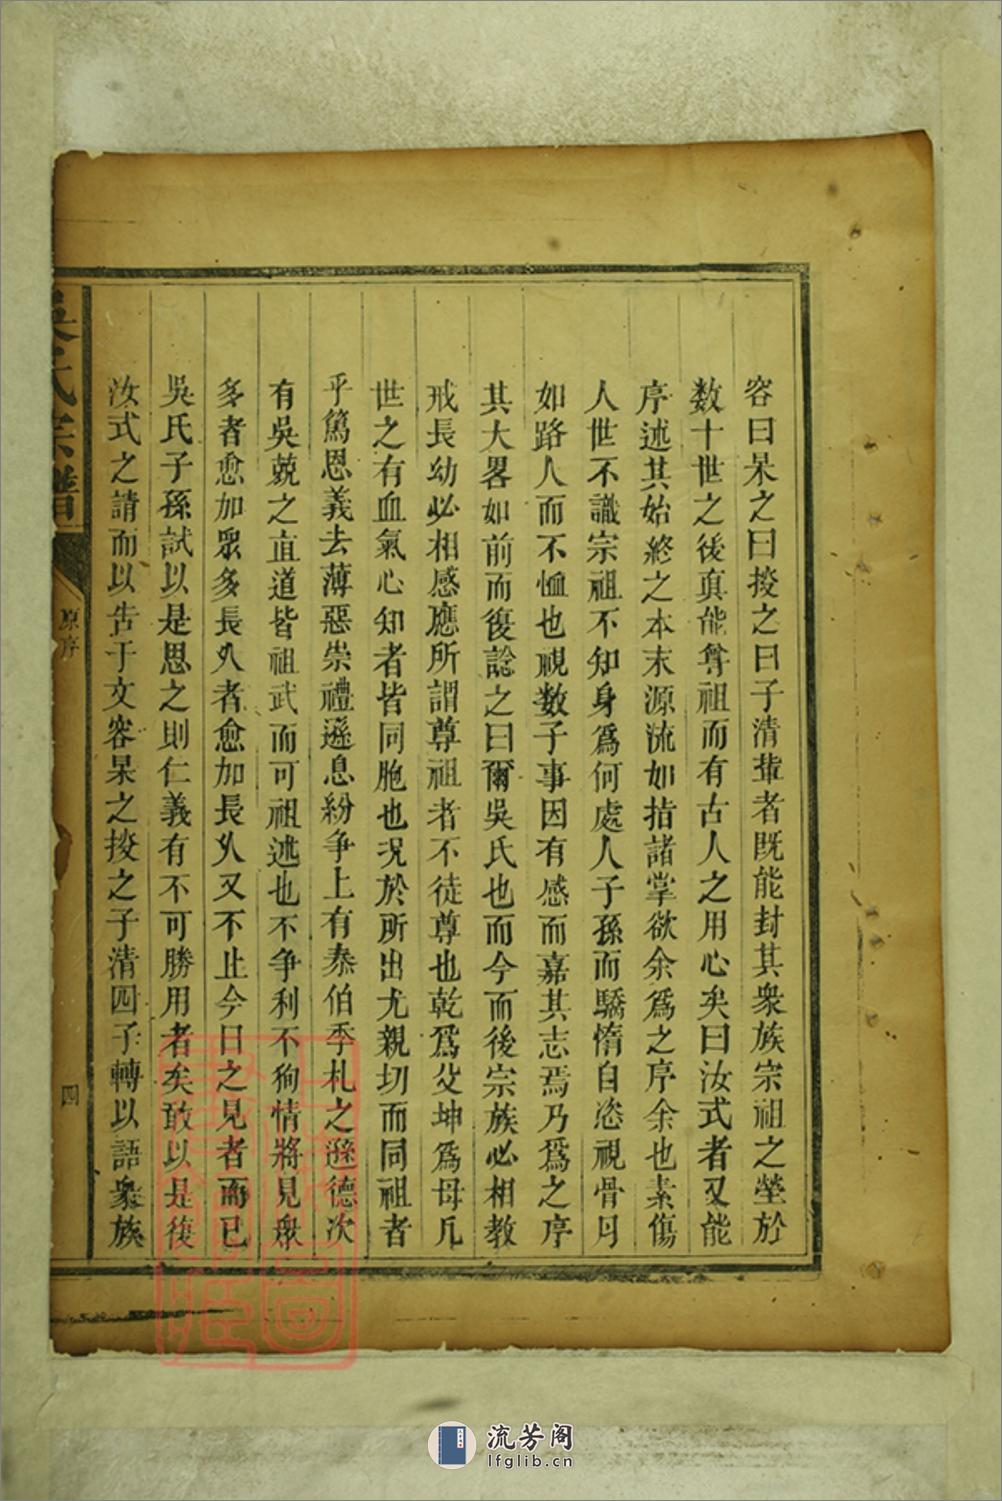 容曰杲之曰㧞之曰子清輩者既能封其衆族宗祖之塋於
数十世之後真能尊祖而有古人之用心矣曰汝式者又能
序述其始終之本末源流如指諸掌欲余爲之序余也素傷
人世不識宗祖不知身爲何處人子孫而驕惰自恣視骨月
如路人而不恤也視数子事因有感而嘉其志焉乃爲之序
其大畧如前而復諗之曰爾吳氏也而今而後宗族必相教
戒長幼必相感應所謂尊祖者不徒尊也乾爲父坤爲母凡
世之有血氣心知者皆同胞也况於所出尤親切而同祖者
乎篤恩義去薄惡崇禮遜息紛爭上有泰伯季札之遜德次
有吳兢之直道皆祖武而可祖述也不争利不狥情將見衆
多者愈加衆多長久者愈加長久又不止今日之見者而已
吳氏子孫試以是思之則仁義有不可勝用者矣敢以是復
汝式之請而以告于文容杲之㧞之子清四子轉以語衆族
吳氏宗譜
原序
四
流芳阁
lfglib.cn